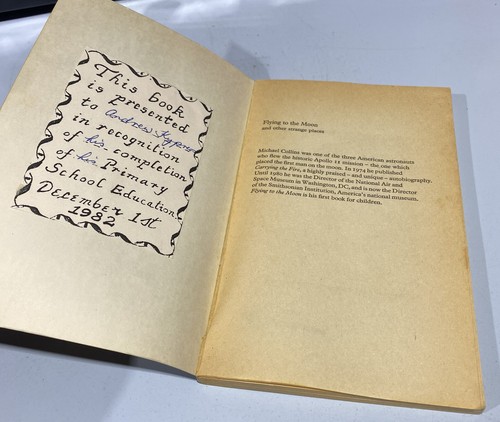 This book
is presented
to Andrew
in recognition
of his completion
of his Primary
School Education.
December 1st
1982
Flying to the Moon
and other strange places
Michael Collins was one of the three American astronauts
who flew the historic Apollo 11 mission – the one which
placed the first man on the moon. In 1974 he published
Carrying the Fire, a highly praised – and unique – autobiography.
Until 1980 he was the Director of the National Air and
Space Museum in Washington, DC, and is now the Director
of the Smithsonian Institution, America's national museum.
Flying to the Moon is his first book for children.